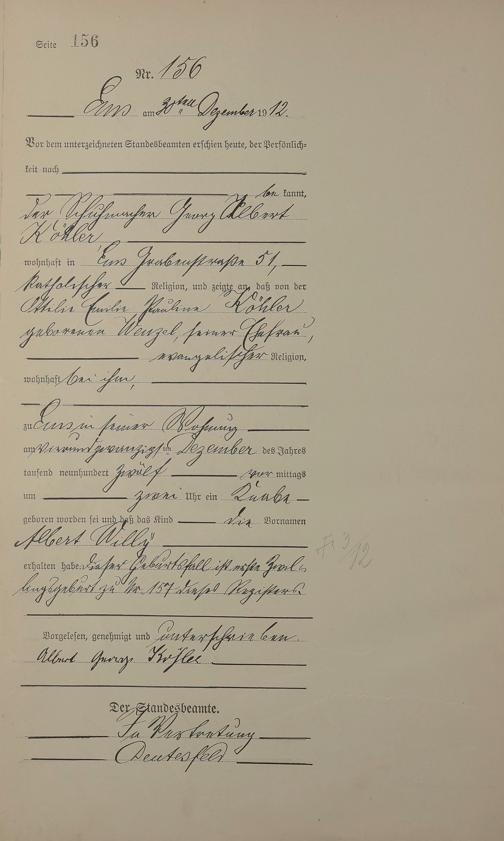 Seite 156
Nr. 156
Ems am 30ten Dezember 1912.
Vor dem unterzeichneten Standesbeamten erschien heute, der Persönlich-
keit nach
bekannt,
der Schuhmacher Georg Albert
Köhler
wohnhaft in Ems Grabenstraße 51,
katholischer Religion, und zeigte an, daß von der
Ottilie Emilie Pauline Köhler
geborenen Wenzel, seiner Ehefrau,
evangelischer Religion,
wohnhaft bei ihm,
zu Ems in seiner Wohnung
am vierundzwanzigsten Dezember des Jahres
tausend neunhundert zwölf vormittags
um zwei Uhr ein Knabe
geboren worden sei und daß das Kind die Vornamen
Albert Willy
erhalten habe. Dieser Geburtsfall ist erste Zwil-
lingsgeburt zu Nr. 157 dieses Registers.
Vorgelesen, genehmigt und unterschrieben.
Albert Georg Köhler
Der Standesbeamte.
In Vertretung